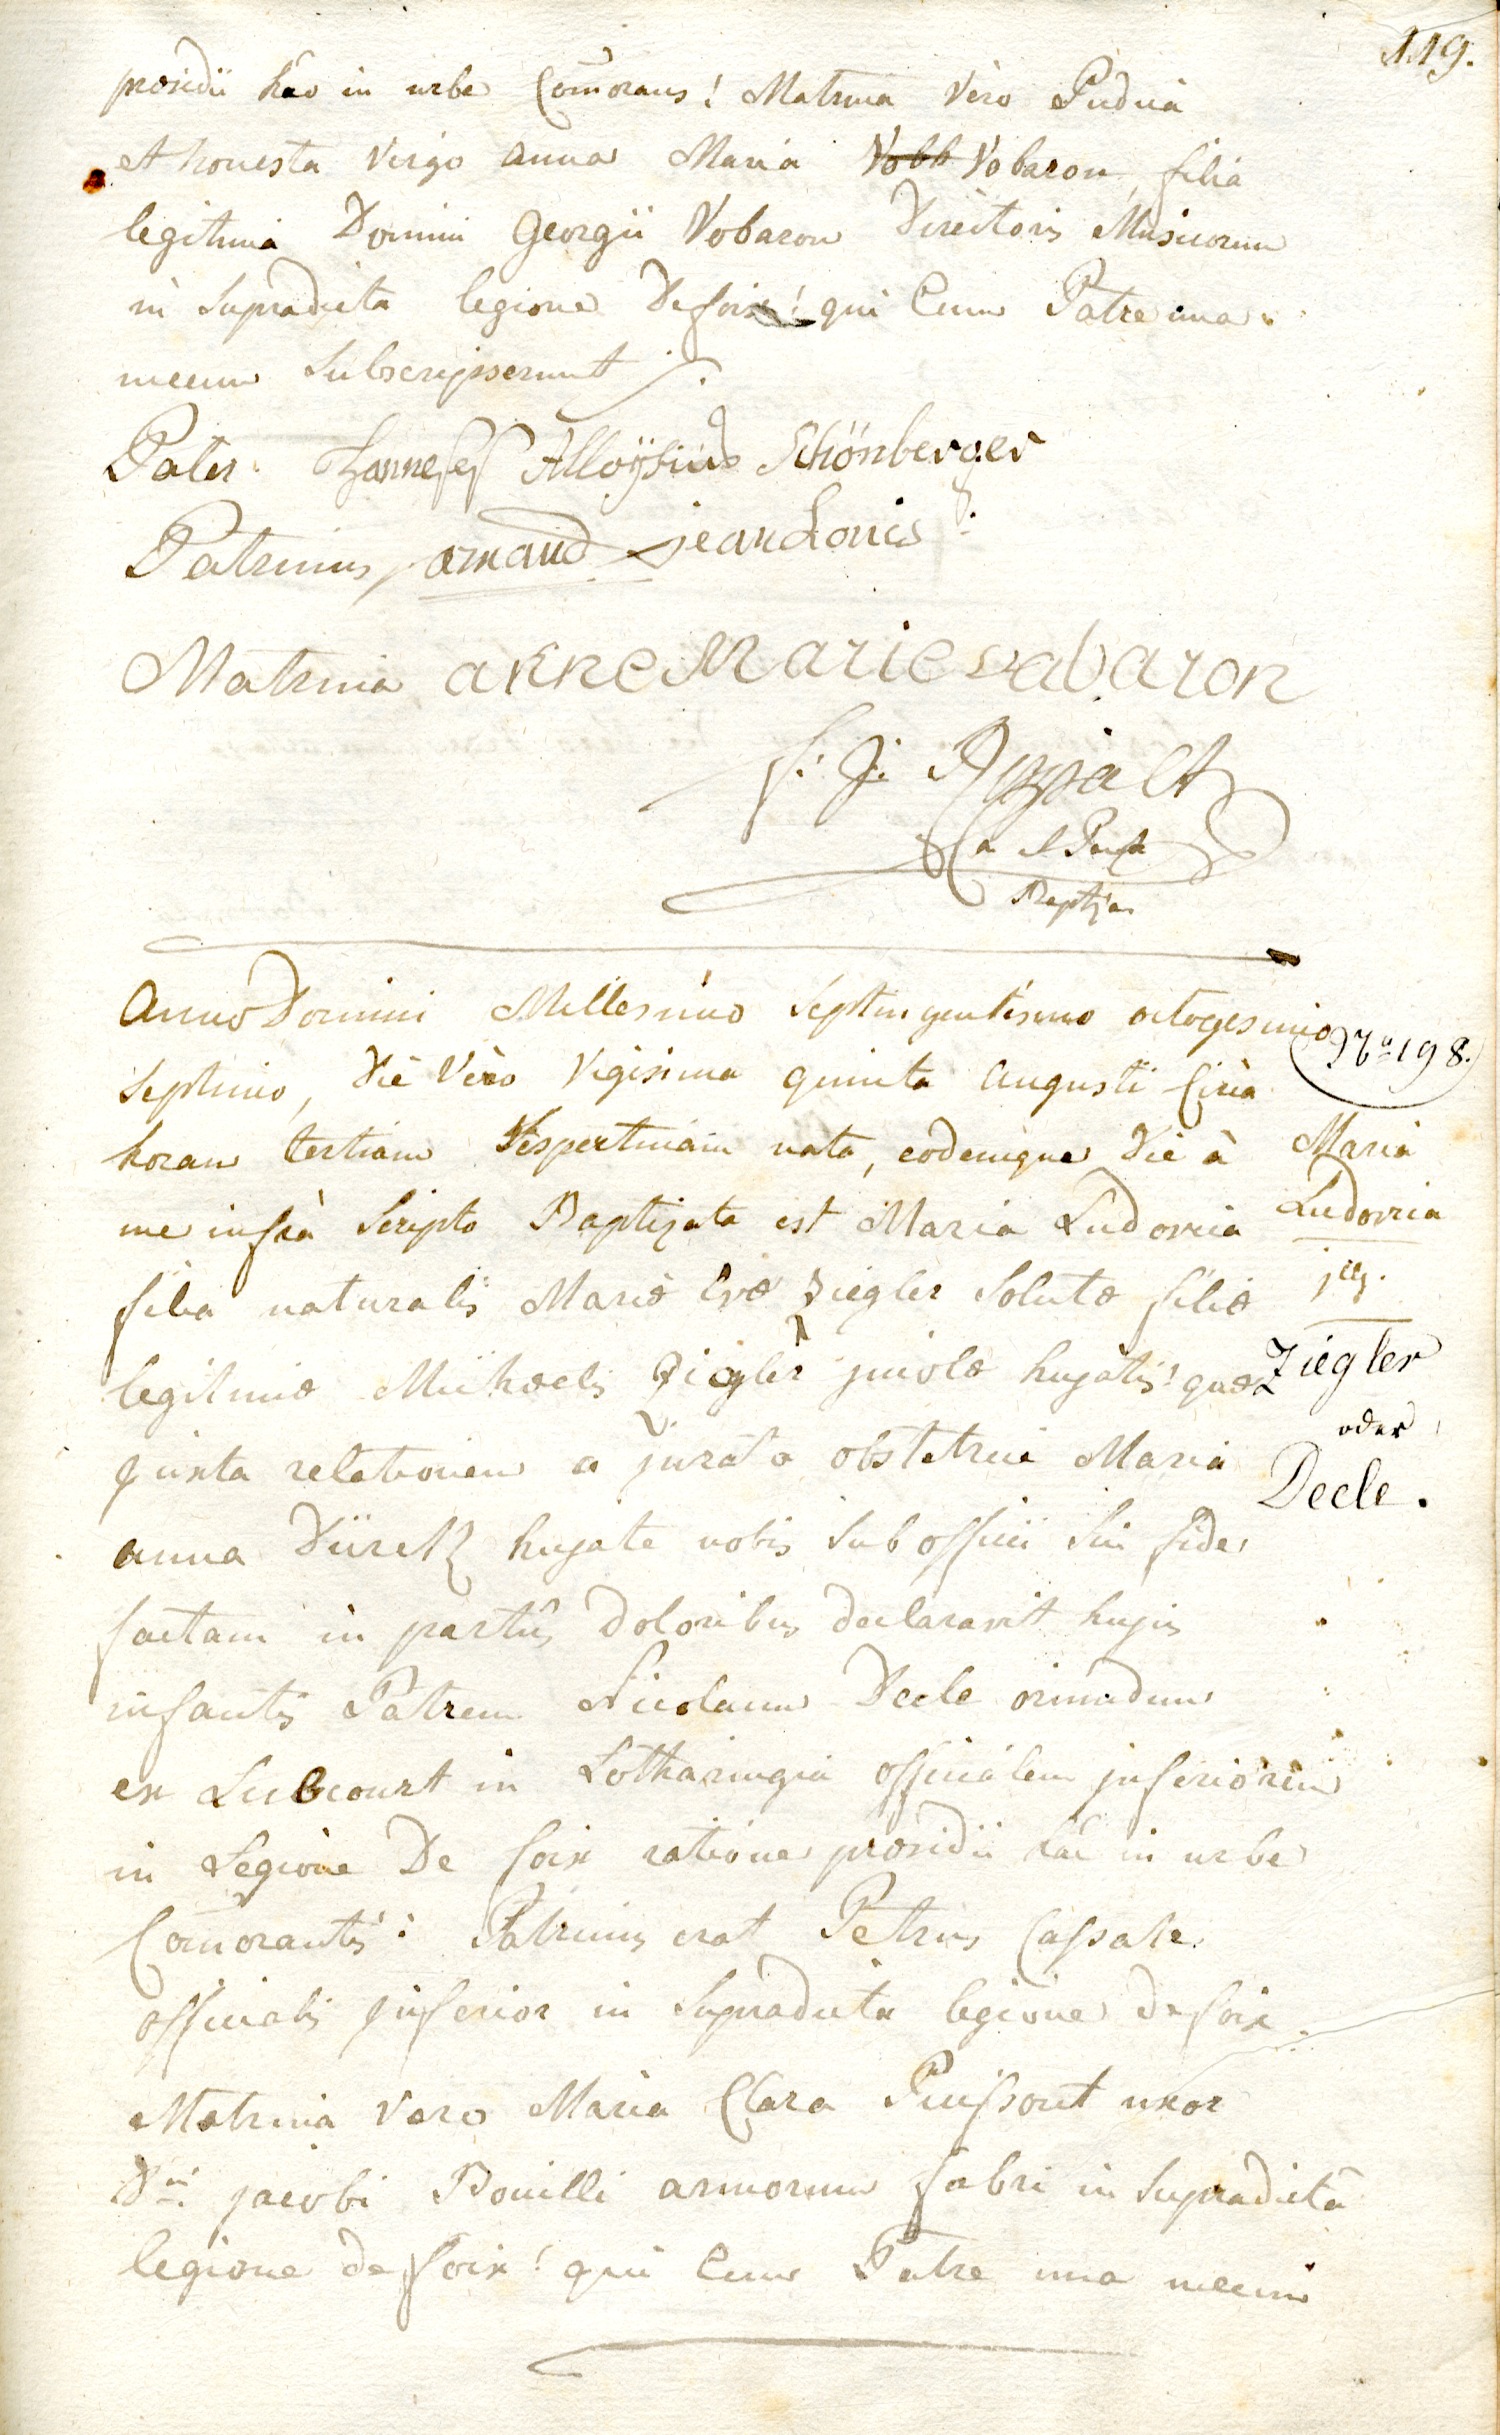 119.
præsidii hâc in urbe Com̃orans! Matrina Vèro Pudica
et honesta Virgo anna Maria Vobb Vobaron, filia
legitima Domini Georgii Vobaron Directoris Musicorum
in Supradicta legione De foix! qui Cum Patre una
mecum Subscripserunt
Pater Alloÿsius Schönberger
Patrinus arnaud jean Louis
Matrina anne Marie vabaron
Baptizans
Anno Domini Millesimo Septingentesimo octogesimo
Septimo, Die Vèro Vigesima quinta Augusti Circà
horam tertiam Vespertinam nata, eodemque Die à
me infrà Scripto Baptizata est Maria Ludovica
filia naturalis Mariæ Evæ Ziegler Solutæ filiæ
legitimæ Michaelis Ziegler jncolæ hujatis! quæ
juxta relationem a jurata obstetrice Maria
anna Dürck hujate nobis Sub officii Sui fide
factam in partûs doloribus declaravit hujus
infantis Patrem Nicolaum Decle oriundum
ex Lubcourt in Lotharingia officialem jnferiorem
in Legione De foix ratione præsidii hac in urbe
Com̃orantis: Patrinus erat Petrus Cassale
officialis jnferior in Supradicta legione de foix
Matrina Vero Maria Clara Puissont uxor
Dni jacobi Bouilli armorum fabri in Supradictâ
legione de foix! qui Cum Patre una mecum
No 198.
Maria
Ludovica
jlleg.
Ziegler
oder
Decle.